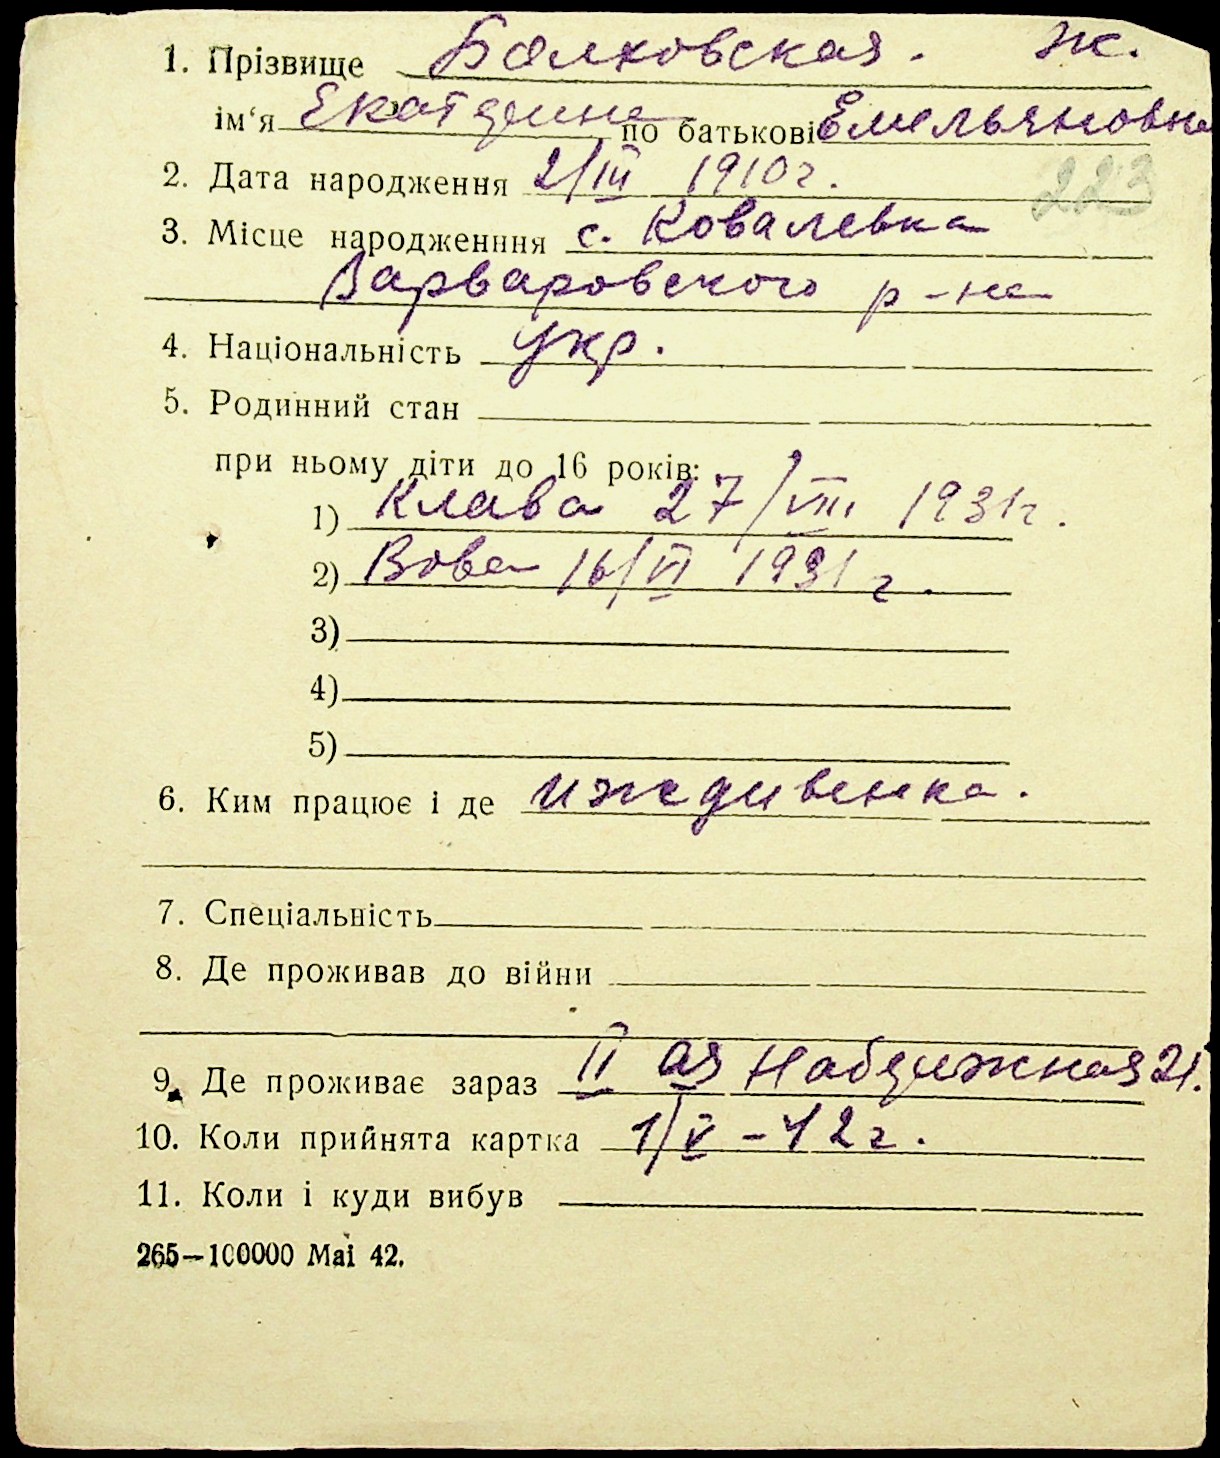 1. Прізвище Балховская. ж.
ім‘я Екатерина по батькові Емельяновна
2. Дата народження 2/III 1910 г.
223
3. Місце народженння с. Ковалевка
Варваровского р-на
4. Національність укр.
5. Родинний стан
при ньому діти до 16 років:
1) Клава 27/VIII 1931 г.
2) Вова 16/VI 1931 г.
3)
4)
5)
6. Ким працює і де иждивенка.
7. Спеціальність
8. Де проживав до війни
9. Де проживає зараз II ая Набережная 21.
10. Коли прийнята картка 1/V - 42 г.
11. Коли і куди вибув
265—100000 Маі 42.